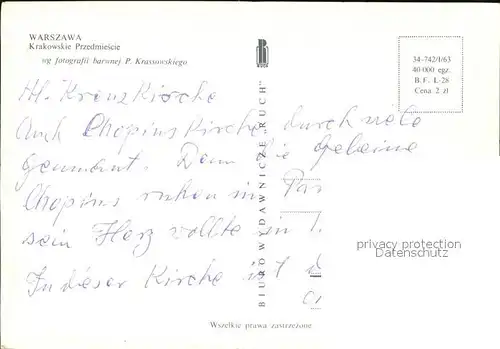 WARSZAWA
Krakowskie Przedmieście
wg fotografii barwnej P. Krassowskiego
34-742/I/63
40 000 egz.
B. F. I-28
Cena 2 zł
RUCH
BIURO WYDAWNICZE „RUCH”
Hl. Kreuz Kirche
Auch Chopins Kirche, durch viele
genannt. Denn die Gebeine
Chopins ruhen in Par
sein Herz wollte in
In dieser Kirche ist d
privacy protection
Datenschutz
Wszelkie prawa zastrzeżone